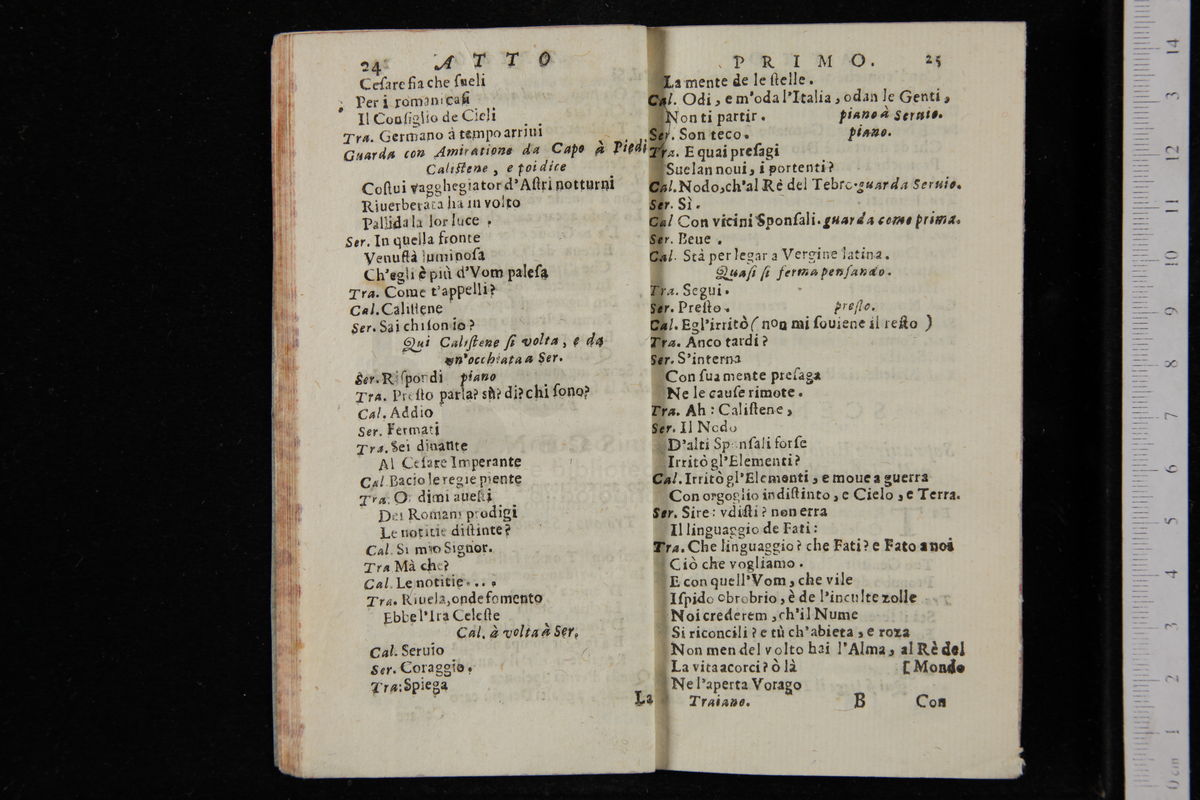 24 ATTO
Cesare fia che sueli
Per i romani casi
Il Consiglio de Cieli
Tra. Germano à tempo arriui
Guarda con Amiratione da Capo à Piedi
Calistene, e poi dice
Costui vagghegiator d'Astri notturni
Riuerberata ha in volto
Pallida la lor luce.
Ser. In quella fronte
Venustà luminosa
Ch'egli è più d'Vom palesa
Tra. Come t'appelli?
Cal. Calistene
Ser. Sai chi son io?
Qui Calistene si volta, e da
vn'occhiata a Ser.
Ser. Rispondi piano
Tra. Presto parla? sù? di? chi sono?
Cal. Addio
Ser. Fermati
Tra. Sei dinante
Al Cesare Imperante
Cal Bacio le regie piente
Tra. Or dimi auesti
Dei Romani prodigi
Le notitie distinte?
Cal. Si mio Signor.
Tra Mà che?
Cal. Le notitie....
Tra. Riuela, onde fomento
Ebbe l'Ira Celeste
Cal. à volta à Ser.
Cal. Seruio
Ser. Coraggio.
Tra: Spiega
La
PRIMO. 25
La mente de le stelle.
Cal. Odi, e m'oda l'Italia, odan le Genti,
Non ti partir. piano à Seruio.
Ser. Son teco. piano.
Tra. E quai presagi
Suelan noui, i portenti?
Cal. Nodo, ch'al Rè del Tebro guarda Seruio.
Ser. Sì.
Cal Con vicini Sponsali. guarda come prima.
Ser. Bene.
Cal. Stà per legar a Vergine latina.
Quasi si ferma pensando.
Tra. Segui.
Ser. Presto. presto.
Cal. Egl'irritò (non mi souiene il resto)
Tra. Anco tardi?
Ser. S'interna
Con sua mente presaga
Ne le cause rimote.
Tra. Ah: Calistene,
Ser. Il Nodo
D'alti Sponsali forse
Irritò gl'Elementi?
Cal. Irritò gl'Elementi, e moue a guerra
Con orgoglio indistinto, e Cielo, e Terra.
Ser. Sire: vdisti? non erra
Il linguaggio de Fati:
Tra. Che linguaggio? che Fati? e Fato a noi
Ciò che vogliamo.
E con quell'Vom, che vile
Ispido obrobrio, è de l'inculte zolle
Noi crederem, ch'il Nume
Si riconcili? e tù ch'abieta, e roza
Non men del volto hai l'Alma, al Rè del
La vita acorci? ò là [Mondo
Ne l'aperta Vorago
Traiano. B Con